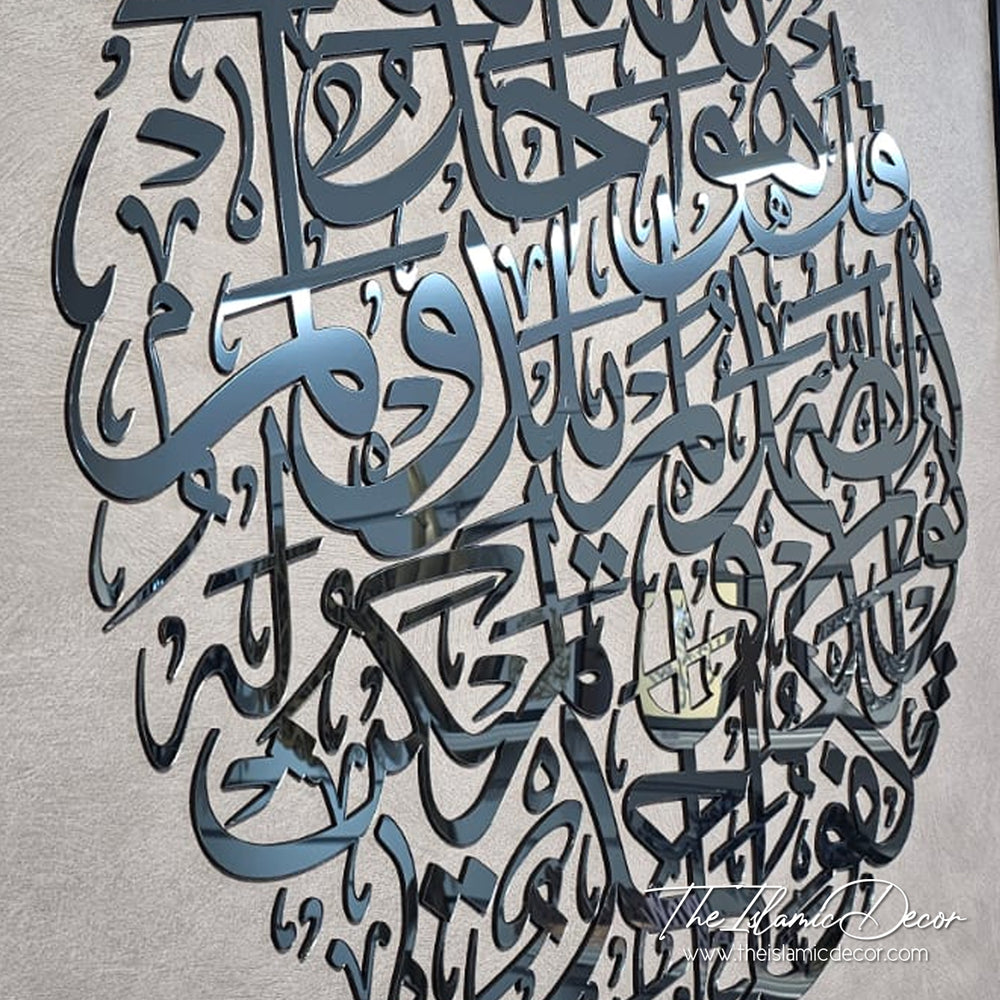 قُلْ هُوَ اللَّهُ أَحَدٌ
اللَّهُ الصَّمَدُ لَمْ يَلِدْ وَلَمْ
يُولَدْ وَلَمْ يَكُنْ لَهُ
كُفُوًا أَحَدٌ
The Islamic Decor
www.theislamicdecor.com